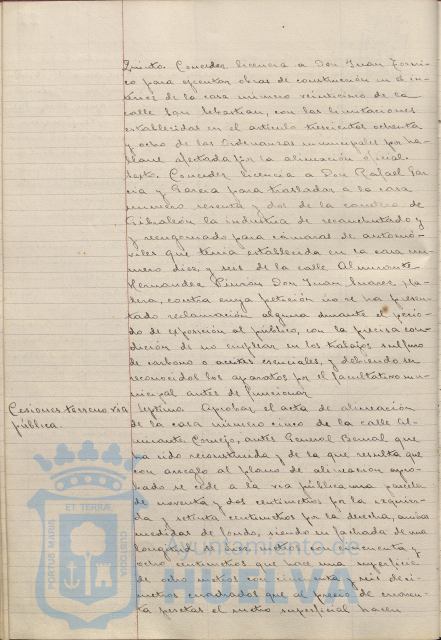 Quinto. Conceder licencia a Don Juan
para ejecutar obras de construcción en el in-
terior de la casa número veinticinco de la
calle San Sebastian, con las limitaciones
establecidas en el artículo trescientos ochenta
y ocho de las Ordenanzas municipales por ha-
llarse afectada por la alineación oficial.
Sexto. Conceder licencia a Don Rafael Gar
cia y Garcia para trasladar a la casa
número sesenta y dos de la carretera de
Gibraleón la industria de recauchutado y
y reengomado para cámaras de automó-
viles que tenia establecida en la casa nú-
mero diez y seis de la calle Almirante
Hernandez Pinzón Don Juan Suarez
contra cuya petición no se ha presen-
tado reclamación alguna durante el perio-
do de exposición al público, con la precisa con-
dición de no emplear en los trabajos sulfuro
de carbono o aceites esenciales, y debiendo ser
reconocidos los aparatos por el facultativo mu-
nicipal antes de funcionar
Cesiones terreno via
pública.
Septimo. Aprobar el acta de alineación
de la casa número cinco de la calle Al-
mirante Cornejo, antes General Bernal que
ha sido reconstruida y de la que resulta que
con arreglo al plano de alineación apro-
bado se cede a la via pública una parcela
de noventa y dos centimetros por la izquier-
da y setenta centimetros por la derecha, ambas
medidas de fondo, siendo su fachada de una
longitud de diez metros con cincuenta y
ocho centimetros que hace una superficie
de ocho metros con cincuenta y seis deci-
metros cuadrados que al precio de cincuen-
ta pesetas el metro superficial hacen
Ayuntamiento de
HUELVA
PORTUS MARIS
ET TERRÆ
CUSTODIA